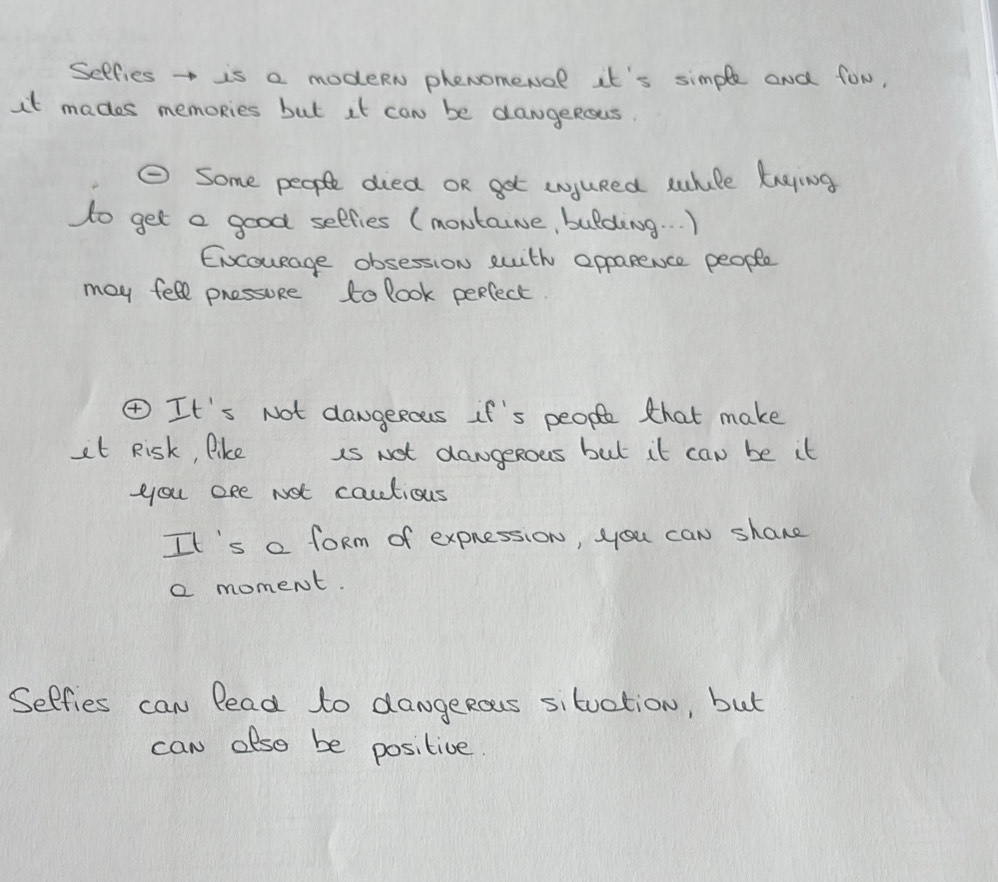 Selfies → is a modern phenomenal it's simple and fun,
it mades memories but it can be dangerous.
⊖ Some people died or got injured while trying
to get a good selfies (montaine, bulding...)
Encourage obsession with apparence people
may fell pressure to look perfect.
⊕ It's not dangerous if's people that make
it risk, like is not dangerous but it can be it
you are not cautious
It's a form of expression, you can share
a moment.
Selfies can lead to dangerous situation, but
can also be positive.